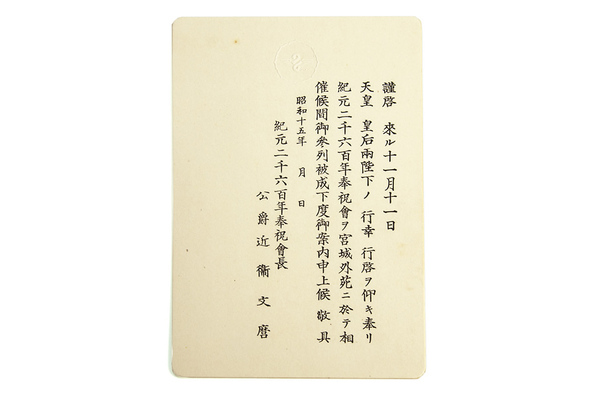 謹啓 來ル十一月十一日
天皇 皇后兩陛下ノ 行幸 行啓ヲ仰キ奉リ
紀元二千六百年奉祝會ヲ宮城外苑ニ於テ相
催候間御參列被成下度御案內申上候 敬具
昭和十五年 月 日
紀元二千六百年奉祝會長
公爵 近衞文麿